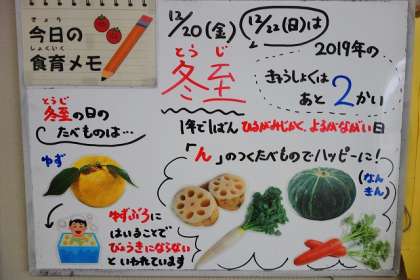 きょう
今日の
しょくいく
食育メモ
12/20(金)
12/22(日)は
とうじ
冬至
2019年の
きゅうしょくは
あと2かい
1年でいちばん ひるがみじかく、よるがながい日
とうじ
冬至の日の
たべものは…
ゆず
ゆずぶろに
はいることで
びょうきにならない
といわれています
「ん」のつくたべものでハッピーに!
(なん
きん)